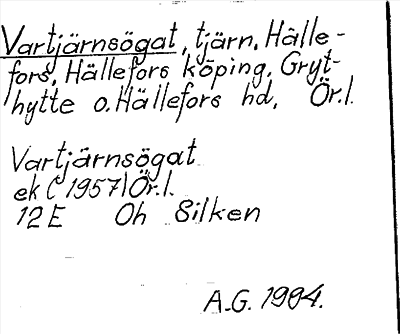 Vartjärnsögat, tjärn, Hälle-
fors, Hällefors köping, Gryt-
hytte o. Hällefors hd, Ör.l.
Vartjärnsögat
ek (1957) Ör.l.
12E Oh Silken
A.G. 1984.